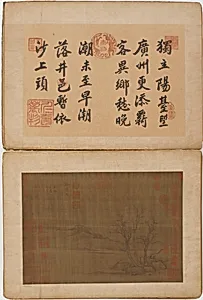 獨立陽基望
廣州更添羇
客異鄉愁晚
潮未至早潮
落井邑暫依
沙上頭